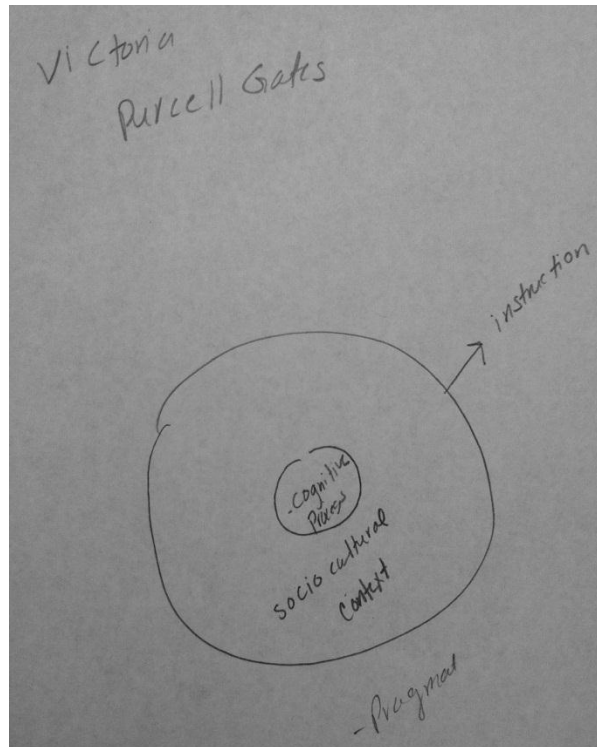 Victoria
Purcell Gates
instruction
-Cognitive
Process
socio cultural
context
-Pragmat